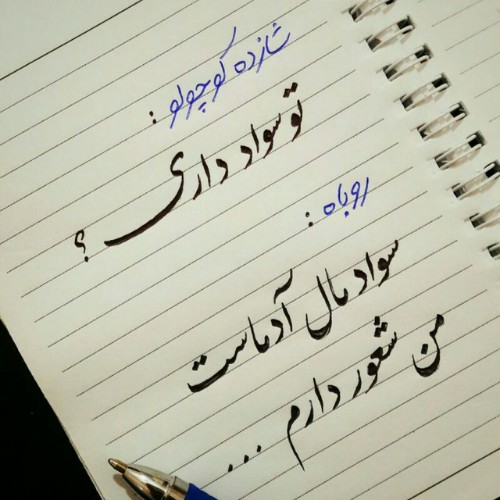 شازده کوچولو :
تو سواد داری ؟
روباه :
سواد مال آدماست
من شعور دارم ...